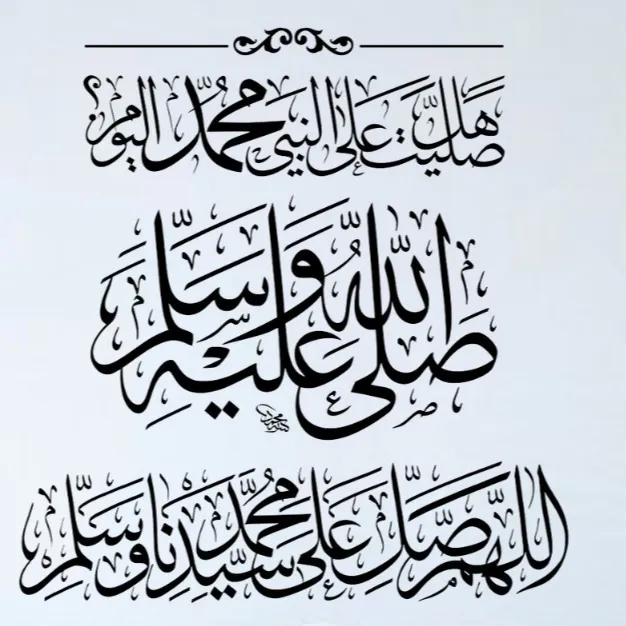 هل صليت على النبي محمد اليوم؟
صلى الله عليه وسلم
اللهم صل وسلم على سيدنا محمد